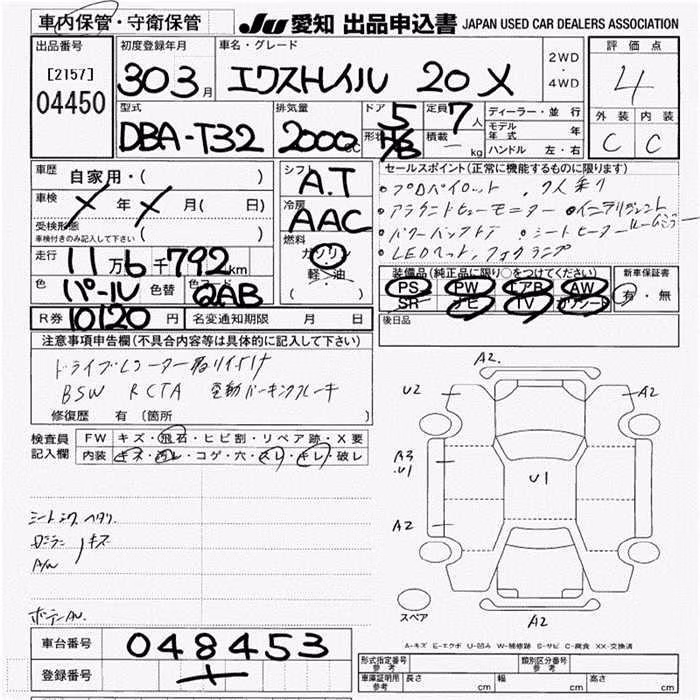 車内保管・守衛保管
JU 愛知 出品申込書 JAPAN USED CAR DEALERS ASSOCIATION
出品番号 初度登録年月 車名・グレード 評価点
[2157]
04450
303月 エクストレイル 20X 2WD・4WD 4
型式 排気量 ドア 定員 ディーラー・並行 外装 内装
DBA-T32 2000cc 5 7人 モデル年式 年 C C
形状 H/B 積載 ー kg ハンドル 左・右
車歴 自家用・( ) シフト A.T セールスポイント(正常に機能するものに限ります)
・プロパイロット ・7人乗り
車検 年 月( 日) 冷房 AAC ・アラウンドビューモニター ・インテリジェントルームミラー
受検形態 車検付きのみ記入して下さい( ) ・パワーバックドア ・シートヒーター
・LEDヘッド、フォグランプ
走行 11万6千792km 燃料 ガソリン 軽・油 ( )
装備品(純正品に限り○をつけてください) 新車保証書
色 パール 色替 色コード QAB PS PW エアB AW 有・無
SR ナビ TV カワシート
R券 10120円 名変通知期限 月 日 後日品
注意事項申告欄(不具合内容等は具体的に記入して下さい)
ドライブレコーダー取り付け
BSW RCTA 電動パーキングブレーキ
修復歴 有(箇所 )
検査員記入欄 FW キズ・飛石・ヒビ割・リペア跡・X要
内装 キズ・汚レ・コゲ・穴・スレ・キレ・破レ
A2
U2
A2
A3
U1
U1
A2
A2
シート
キズ
A/W
スペア
A-キズ E-エクボ U-凹み W-補修跡 S-サビ C-腐食 XX-交換済
車台番号 048453
登録番号
型式指定番号 参考 類別区分番号 参考
車庫証明用 参考 長さ cm 幅 cm 高さ cm